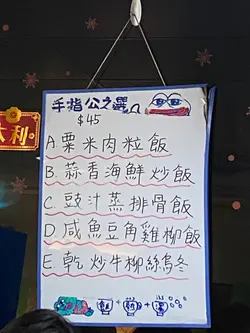 手指公之選
$45
A. 粟米肉粒飯
B. 蒜青海鮮炒飯
C. 豉汁蒸排骨飯
D. 咸魚豆角雞柳飯
E. 乾炒牛柳絲烏冬
利